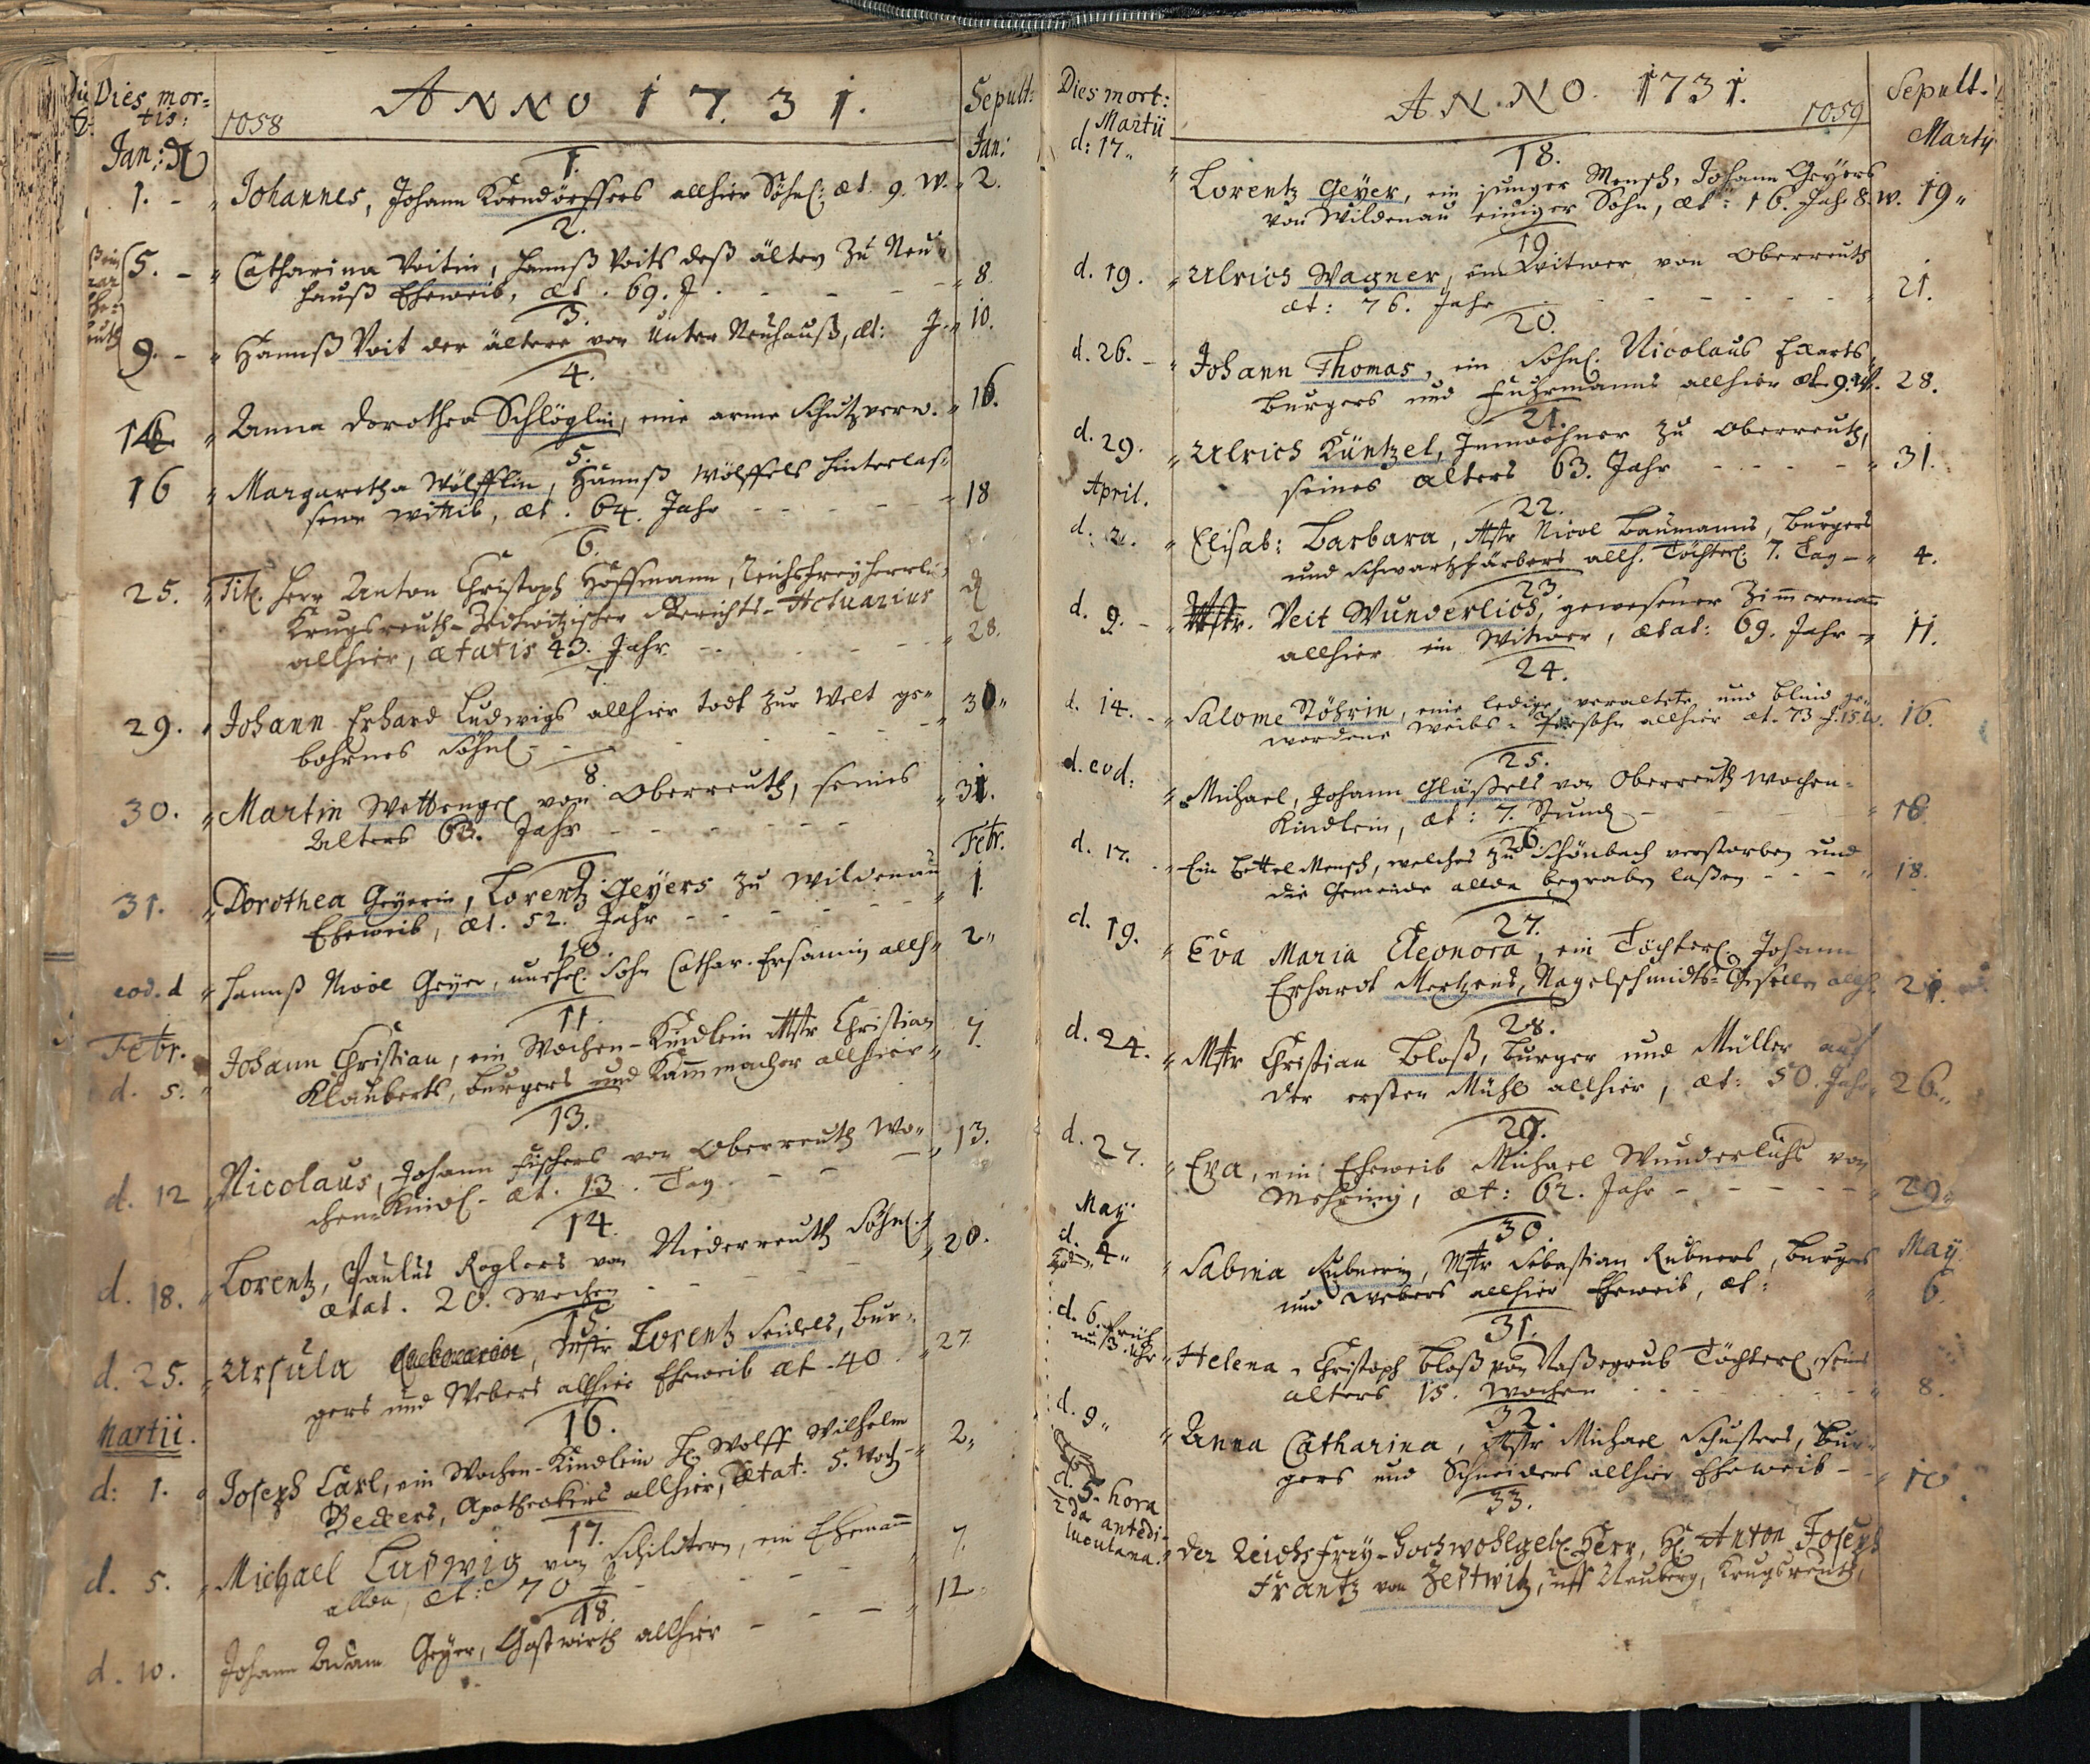 Dies mor=
tis:
1058
ANNO 1731.
Sepult:
Jan:
Jan:
1.
1. - " Johannes, Johann Korndörffers allhier Söhnl: æt. 9. W. " 2.
2.
5. - " Catharina Voitin, Hannß Voits deß ältern zu Neu=
hauß Eheweib, æt. 69. J. - - - - " 8
3.
9. - " Hannß Voit der ältere von Unter Neuhauß, æt: J. " 10.
4.
14 " Anna Dorothea Schlöglin, eine arme Schutzverw. " 16.
5.
16 " Margaretha Wölfflin, Hannß Wölffels hinterlas=
sene Wittib, æt. 64. Jahr - - - - " 18
6.
25. " Tit. Herr Anton Christoph Hoffmann, Reichsfreyherrli=
Krugsreuth-Zedtwitzischer Gerichts-Actuarius
allhier, ætatis 43. Jahr - - - - " 28.
7
29. " Johann Erhard Ludwigs allhier todt zur Welt ge= " 30 "
bohrnes Söhnl - - - - -
8.
30. " Martin Wettengel von Oberreuth, seines
Alters 63. Jahr - - - - - " 31.
Febr.
9.
31. " Dorothea Geyerin, Lorentz Geyers zu Wildenau
Eheweib, æt. 52. Jahr - - - - " 1.
10.
eod. d " Hannß Nicol Geyer, unehel. Sohn Cathar. Ersamin allh " 2 "
11.
Febr.
d. 5. " Johann Christian, ein Wochen-Kindlein Mstr Christian
Klauberts, Burgers und Kammmacher allhier " 7.
13.
d. 12 " Nicolaus, Johann Fischers von Oberreuth Wo=
chen-Kindl - æt. 13. Tag - - - " 13.
14.
d. 18. " Lorentz, Paulus Roglers von Niederreuth Söhnl.
ætat. 20. Wochen - - - - " 20.
15.
d. 25. " Ursula, Mstr Lorentz Seidels, Bur=
gers und Webers allhier Eheweib æt. 40. " 27
Martii.
16.
d: 1. " Joseph Carl, ein Wochen-Kindlein H. Wolff Wilhelm
Beckers, Apotheckers allhier, Ætat: 5. Woch " 2 "
17.
d. 5. " Michael Ludwig von Schildern, ein Ehemann
allda, æt: 70 J - - - - " 7.
18.
d. 10. Johann Adam Geyer, Gastwirth allhier - - - " 12.
Dies mort:
Martii
ANNO. 1731.
1059
Sepult.
Martij
18.
d: 17. " Lorentz Geyer, ein junger Mensch, Johann Geyers
von Wildenau einziger Sohn, æt: 16. Jahr 8. W. 19 "
19
d. 19. " Ulrich Wagner, ein Witwer von Oberreuth
æt: 76. Jahr - - - - - 21.
20.
d. 26. - " Johann Thomas, ein Söhnl. Nicolaus Eckarts,
Burgers und Fuhrmanns allhier æt. 9. W. 28.
21.
d. 29. " Ulrich Küntzel, Innwohner zu Oberreuth,
seines Alters 63. Jahr - - - - " 31.
April.
22.
d. 2. " Elisab: Barbara, Mstr Nicol Baumanns, Burgers
und Schwartzfärbers allh. Töchterl. 7. Tag - " 4.
23.
d. 9. - " Mstr. Veit Wunderlich, gewesener Zimmermann
allhier ein Witwer, ætat: 69. Jahr - " 11.
24.
d. 14. - " Salome Röhrin, eine ledige veraltete und blind ge=
wordene Weibs-Persohn allhier æt. 73 J. 15. W. 16.
25.
d. eod: " Michael, Johann Gläßels von Oberreuth Wochen=
Kindlein, æt: 7. Stund - - " 16
26.
d. 17. " Ein Bettel Mensch, welches zu Schönbach verstorben und
die Gemeinde allda begraben laßen - - - " 18.
27.
d. 19. " Eva Maria Eleonora, ein Töchterl. Johann
Erhardt Mertzens, Nagelschmidts-Gesellen allh. 21.
28.
d. 24. " Mstr Christian Bloß, Burger und Müller auf
der ersten Mühl allhier, æt: 50. Jahr " 26 "
29.
d. 27. " Eva, ein Eheweib Michael Wunderlichs von
Mähring, æt: 62. Jahr - - - - " 29 "
May
May
30.
d. 4 " " Sabina Rubnerin, Mstr Sebastian Rubners, Burgers
und Webers allhier Eheweib, æt: " 6.
31.
d. 6. früh
um 3. Uhr " Helena, Christoph Bloß von Naßegrub Töchterl. seines
Alters 15. Wochen - - - - " 8.
32.
d. 9 " " Anna Catharina, Mstr Michael Schusters, Bur=
gers und Schneiders allhier Eheweib - " 10.
33.
d. 5. hora
2da antedi=
luculana. " Der Reichsfrey-Hochwohlgeb. Herr, H. Anton Joseph
Frantz von Zedtwitz, uff Neuberg, Krugsreuth,